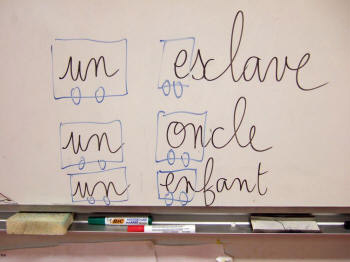 un esclave
un oncle
un enfant
BIC